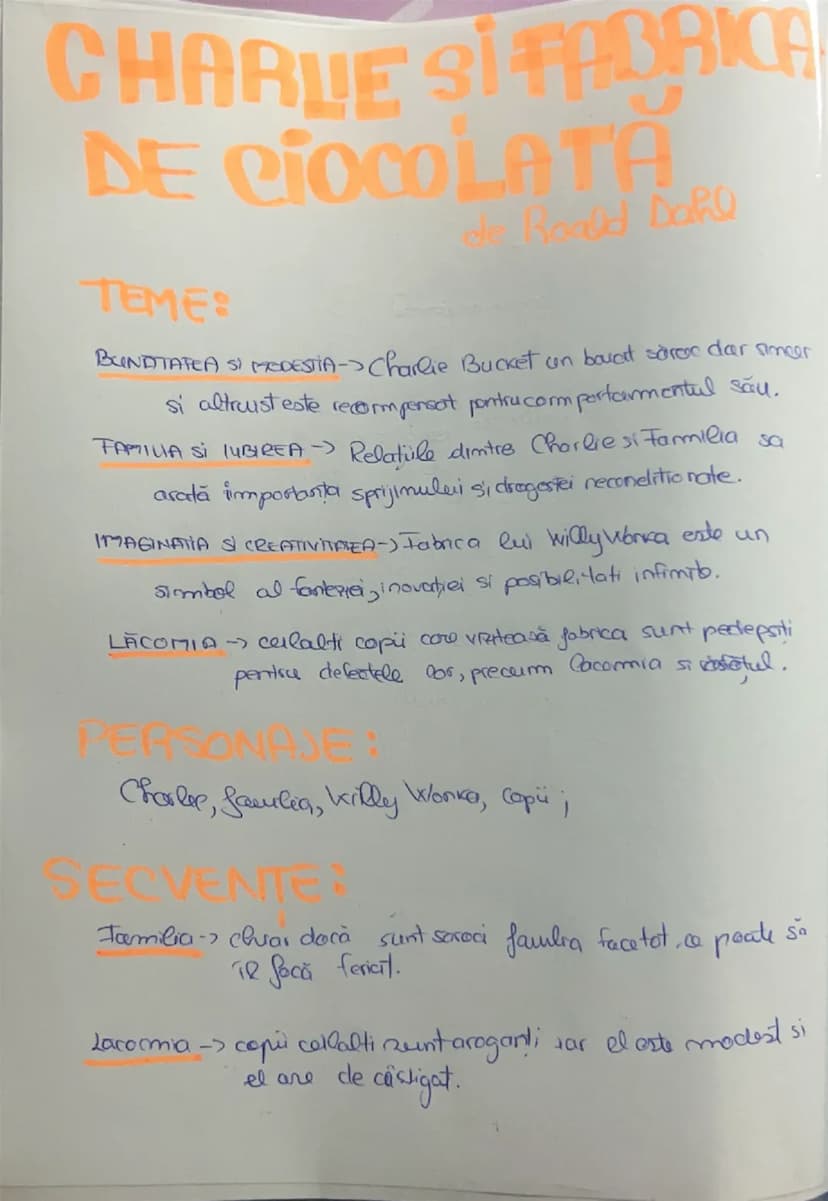 CHARLIE și FABRICA
DE CIOCOLATĂ
de Roald Dahl
TEME:
BUNĂTATEA SI MODESTIA -> Charlie Bucket un baiat sărac dar sincer
si altruist este recompensat pentru comportamentul său.
FAMILIA SI IUBIREA -> Relațiile dintre Charlie si Familia sa
arată importanța sprijinului și dragostei neconditionate.
IMAGINATIA SI CREATIVITATEA -> Fabrica lui Willy Wonka este un
simbol al fanteziei, inovației si posibilitati infinite.
LĂCOMIA -> ceilalti copii care vizitează fabrica sunt pedepsiti
pentru defectele lor, precum lacomia si
PERSONAJE:
Charlie, familia, Willy Wonka, copii;
SECVENȚE:
Familia -> chiar dacă sunt saraci familia face tot ce poate să
îl facă fericit.
Lacomia -> copii ceilalti sunt aroganți iar el este modest si
el are de câștigat.